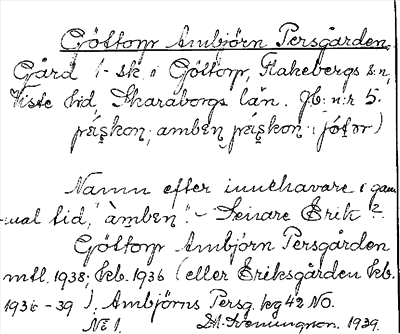 Göttorp Ambjörn Persgården,
Gård 1 sk. i Göttorp, Flakebergs s:n,
Viste hd, Skaraborgs län. Jb: n:r 5.
Namn efter innehavare i gam-
mal tid, "àmbęn". - Senare Erik ?
Göttorp Ambjörn Persgården
mtl. 1938; kb. 1936 (eller Eriksgården kb.
1936-39). Ambjörns Persg. kg 42 NO.
NE 1. 1939.